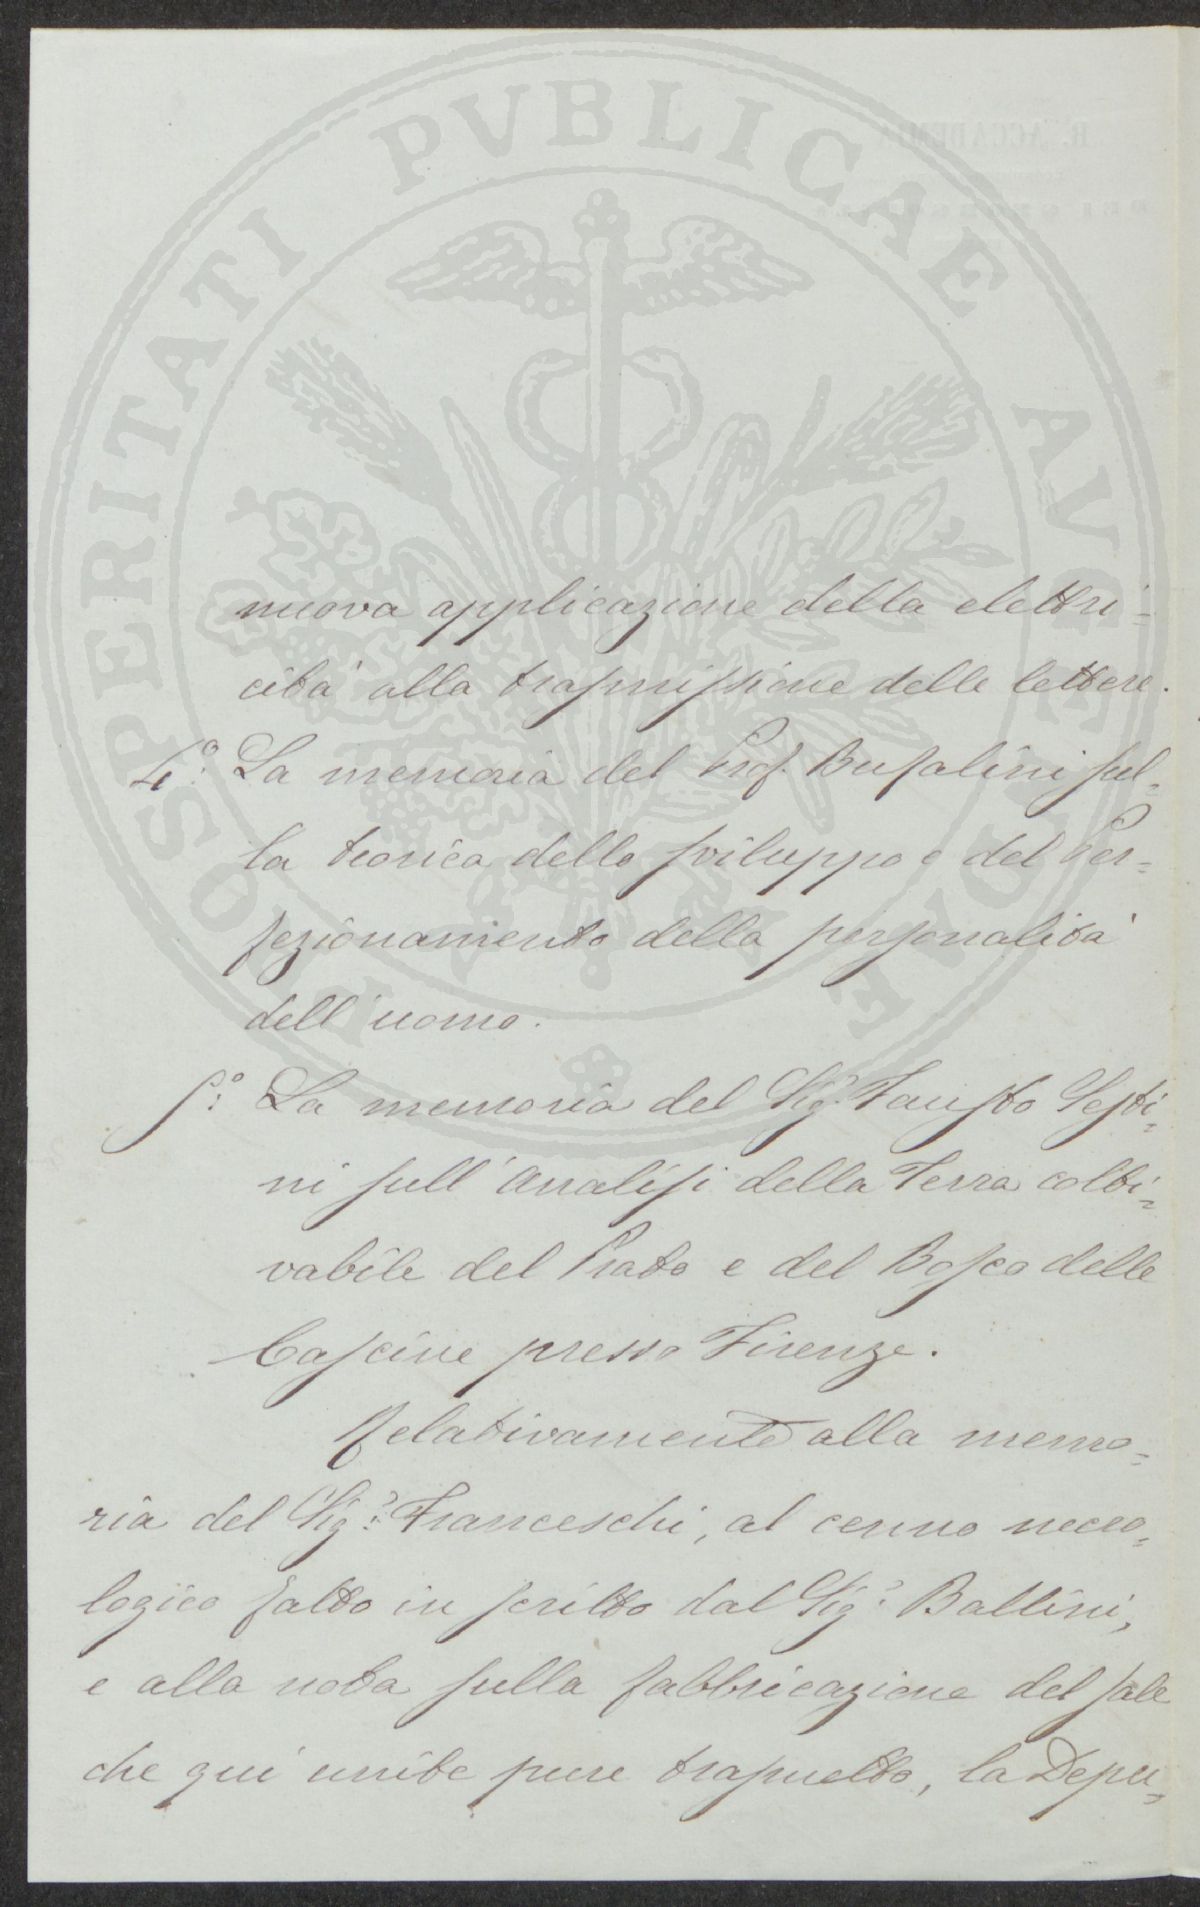 PROSPERITATI PVBLICAE AVGENDAE
R. ACCADEMIA
nuova applicazione della elettri-
cità alla trasmissione delle lettere.
4.° La memoria del Prof. Bufalini sul-
la teorica dello sviluppo e del Per-
fezionamento della personalità
dell'uomo.
5.° La memoria del Sig.r Fausto Sesti-
ni sull'Analisi della Terra colti-
vabile del Prato e del Bosco delle
Cascine presso Firenze.
Relativamente alla memo-
ria del Sig.r Franceschi, al cenno necro-
logico fatto in scritto dal Sig.r Ballini,
e alla nota sulla fabbricazione del sale
che qui unite pure trasmetto, la Depu-